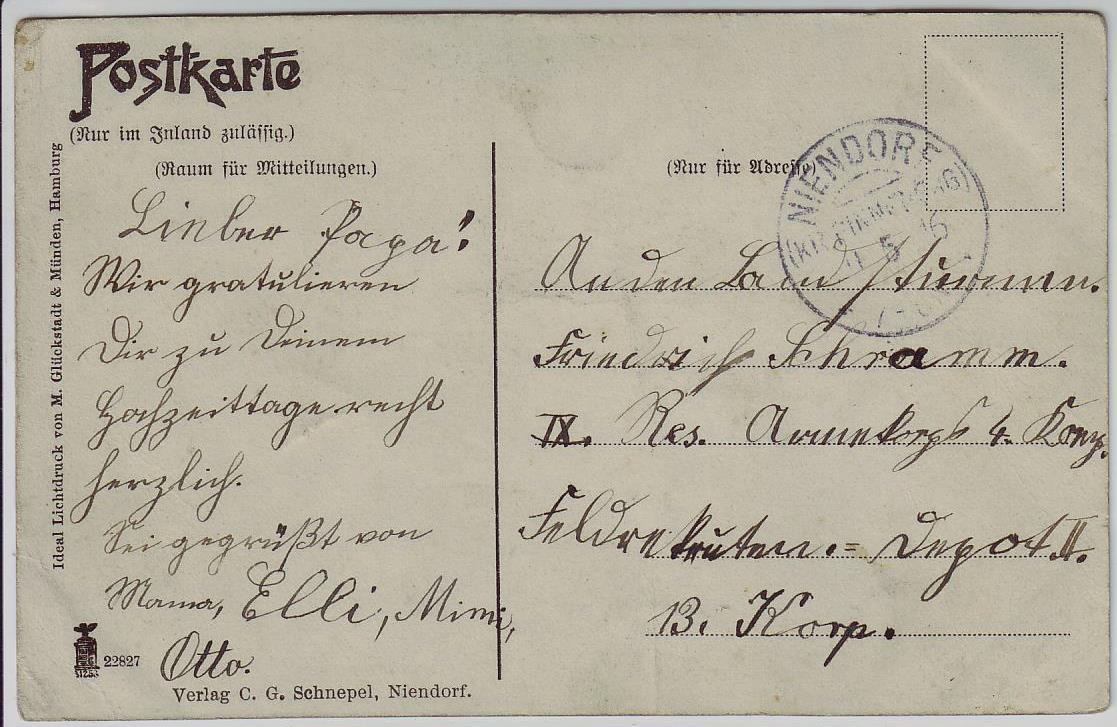 Postkarte
(Nur im Inland zulässig.)
(Raum für Mitteilungen.)
Lieber Papa!
Wir gratulieren
Dir zu Deinem
Hochzeittage recht
herzlich.
Sei gegrüßt von
Mama, Elli, Mimi,
Otto.
22827
Verlag C. G. Schnepel, Niendorf.
Ideal Lichtdruck von M. Glückstadt & Münden, Hamburg
(Nur für Adresse)
NIENDORF
5
An den Landsturmm.
Friedrich Schramm.
IX. Res. Armekorps 4. Komp.
Feldrekruten.= Depot II.
13. Korp.